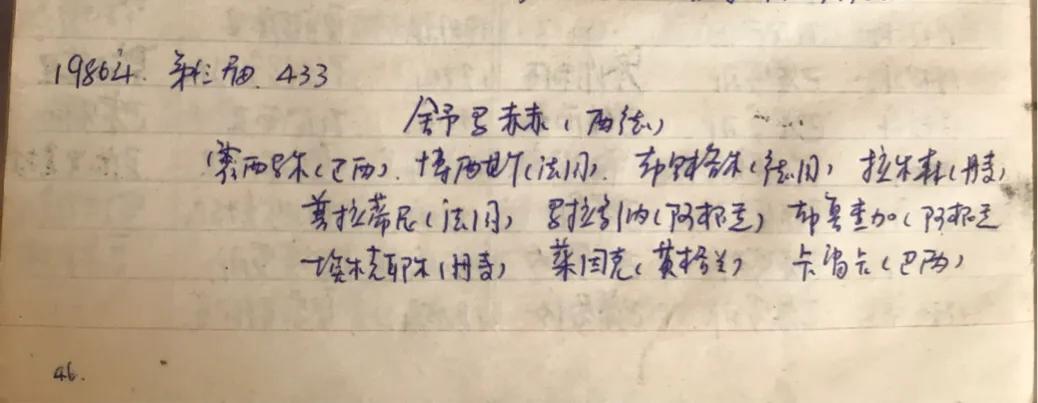 1986年. 第十三届. 433
舒马赫(西德)
塞西尔(巴西). 博西斯(法国). 布里格尔(德国) 拉尔森(丹麦)
普拉蒂尼(法国) 马拉多纳(阿根廷) 布鲁查加(阿根廷
埃尔克耶尔(丹麦) 莱因克(英格兰) 卡雷卡(巴西)
46.